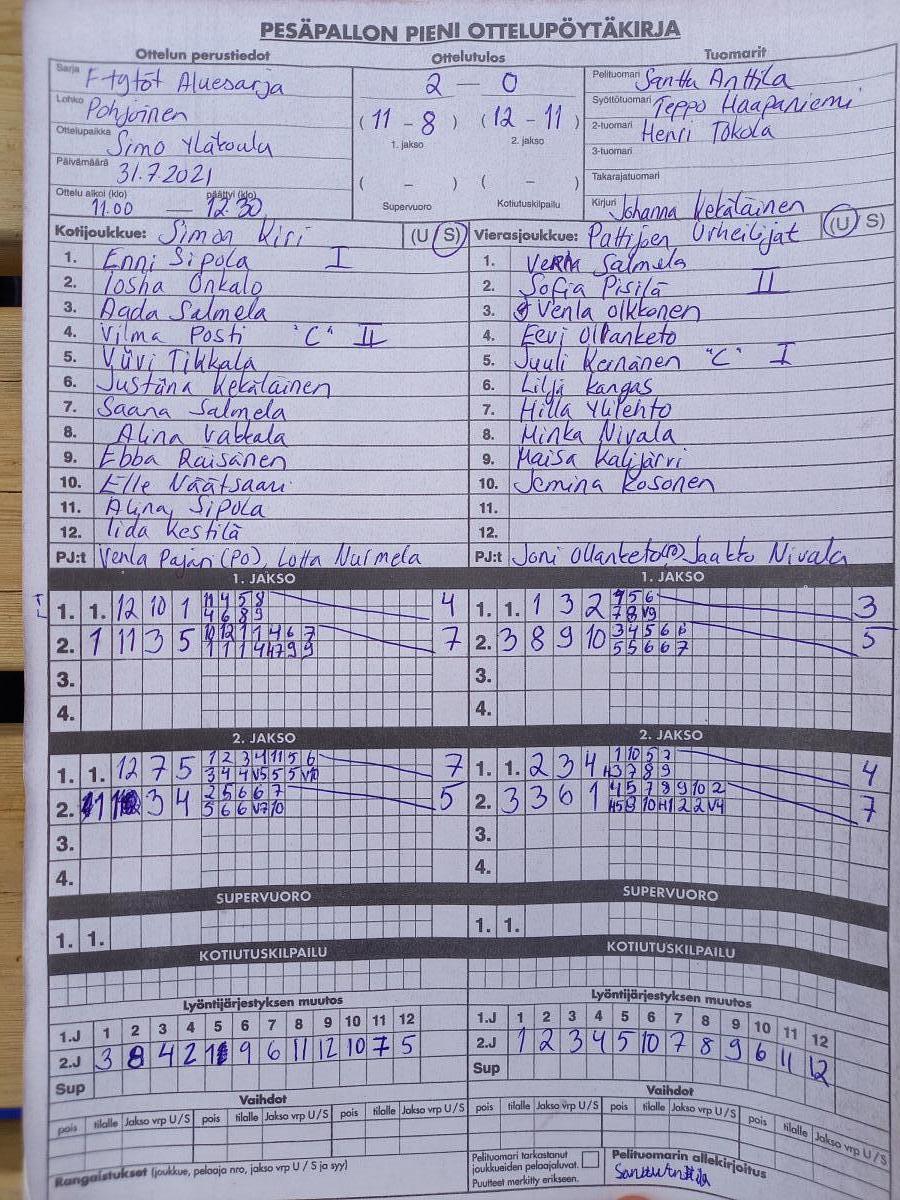 PESÄPALLON PIENI OTTELUPÖYTÄKIRJA
Ottelun perustiedot
Ottelutulos
Tuomarit
Sarja F-tytöt Aluesarja
Lohko Pohjoinen
Ottelupaikka Simo Yläkoulu
Päivämäärä 31.7.2021
Ottelu alkoi (klo) päättyi (klo)
11.00 — 12.30
2 — 0
(11 - 8) (12 - 11)
1. jakso 2. jakso
( - ) ( - )
Supervuoro Kotiutuskilpailu
Pelituomari Santtu Anttila
Syöttötuomari Teppo Haapaniemi
2-tuomari Henri Tokola
3-tuomari
Takarajatuomari
Kirjuri Johanna Kekäläinen
Kotijoukkue: Simon Kiri (U / S)
1. Enni Sipola I
2. Iosha Onkalo
3. Aada Salmela
4. Vilma Posti "C" II
5. Viivi Tikkala
6. Justiina Kekäläinen
7. Saana Salmela
8. Alina Vakkala
9. Ebba Räisänen
10. Elle Näätsaari
11. Alina Sipola
12. Iida Kestilä
PJ:t Venla Pajari (PO), Lotta Nurmela
Vierasjoukkue: Pattijoen Urheilijat (U / S)
1. Verna Salmela
2. Sofia Pisilä II
3. Venla Olkkonen
4. Eevi Ollanketo
5. Juuli Keinänen "C" I
6. Lilja Kangas
7. Hilla Ylilehto
8. Minka Nivala
9. Maisa Kalijärvi
10. Jemina Kosonen
11.
12.
PJ:t Joni Ollanketo Jaakko Nivala
1. JAKSO
1. 1. 12 10 1 11 4 5 8 4
4 6 8 9
2. 1 11 3 5 10 12 1 1 4 6 7 7
1 1 1 4 H7 9 9
3.
4.
1. JAKSO
1. 1. 1 3 2 4 5 6 3
7 8 V9
2. 3 8 9 10 3 4 5 6 6 5
5 5 6 6 7
3.
4.
2. JAKSO
1. 1. 12 7 5 1 2 3 4 11 5 6 7
3 4 4 V5 5 5 V10
2. 11 3 4 2 5 6 6 7 5
5 6 6 V7 10
3.
4.
2. JAKSO
1. 1. 2 3 4 1 10 5 7 4
H3 7 8 9
2. 3 3 6 1 4 5 7 8 9 10 2 7
H5 9 10 H1 2 2 V4
3.
4.
SUPERVUORO
1. 1.
SUPERVUORO
1. 1.
KOTIUTUSKILPAILU
KOTIUTUSKILPAILU
Lyöntijärjestyksen muutos
1.J 1 2 3 4 5 6 7 8 9 10 11 12
2.J 3 8 4 2 1 9 6 11 12 10 7 5
Sup
Lyöntijärjestyksen muutos
1.J 1 2 3 4 5 6 7 8 9 10 11 12
2.J 1 2 3 4 5 10 7 8 9 6 11 12
Sup
Vaihdot
pois tilalle Jakso vrp U / S pois tilalle Jakso vrp U / S pois tilalle Jakso vrp U / S
Vaihdot
pois tilalle Jakso vrp U / S pois tilalle Jakso vrp U / S pois tilalle Jakso vrp U / S
Rangaistukset (joukkue, pelaaja nro, jakso vrp U / S ja syy)
Pelituomari tarkastanut
joukkueiden pelaajaluvat.
Puutteet merkitty erikseen.
Pelituomarin allekirjoitus
Santtu Anttila